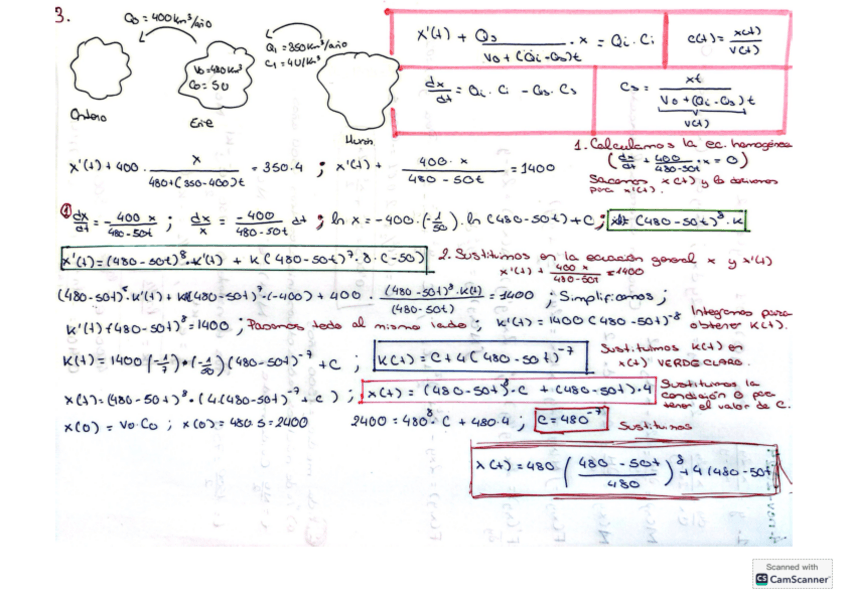 3.
Qs = 400 km³/año
Qi = 350 km³/año
Ci = 4u/km³
V0 = 480 km³
C0 = 5u
Ontario
Erie
Huron
x'(t) + Qs / (V0 + (Qi - Qs)t) · x = Qi · Ci
C(t) = x(t) / V(t)
dx/dt = Qi · Ci - Qs · Cs
Cs = xt / (V0 + (Qi - Qs)t)
V(t)
1. Calculamos la ec. homogénea
(dx/dt + 400/(480-50t) · x = 0)
Sacamos x(t) y lo derivamos
para x'(t).
x'(t) + 400 · x / (480 + (350-400)t) = 350·4 ; x'(t) + 400·x / (480 - 50t) = 1400
① dx/dt = -400x / (480-50t) ; dx/x = -400 / (480-50t) dt ; ln x = -400·(-1/50)·ln(480-50t) + C ; x = (480-50t)⁸ · K
x'(t) = (480-50t)⁸ · K'(t) + K(480-50t)⁷ · 8 · (-50)
2. Sustituimos en la ecuación general x y x'(t)
x'(t) + 400x / (480-50t) = 1400
(480-50t)⁸ · K'(t) + K(480-50t)⁷ · (-400) + 400 · (480-50t)⁸ · K(t) / (480-50t) = 1400 ; Simplificamos ;
K'(t) (480-50t)⁸ = 1400 ; Pasamos todo al mismo lado ; K'(t) = 1400 (480-50t)⁻⁸
Integramos para
obtener K(t).
K(t) = 1400 (-1/7) · (-1/50) (480-50t)⁻⁷ + C ; K(t) = C + 4(480-50t)⁻⁷
Sustituimos K(t) en
x(t) VERDE CLARO.
x(t) = (480-50t)⁸ · (4(480-50t)⁻⁷ + C) ; x(t) = (480-50t)⁸ · C + (480-50t) · 4
Sustituimos la
condición 0 para
tener el valor de C.
x(0) = V0 · C0 ; x(0) = 480·5 = 2400 2400 = 480⁸ · C + 480·4 ; C = 480⁻⁷
Sustituimos
x(t) = 480 ((480 - 50t) / 480)⁸ + 4(480-50t
Scanned with
CS CamScanner